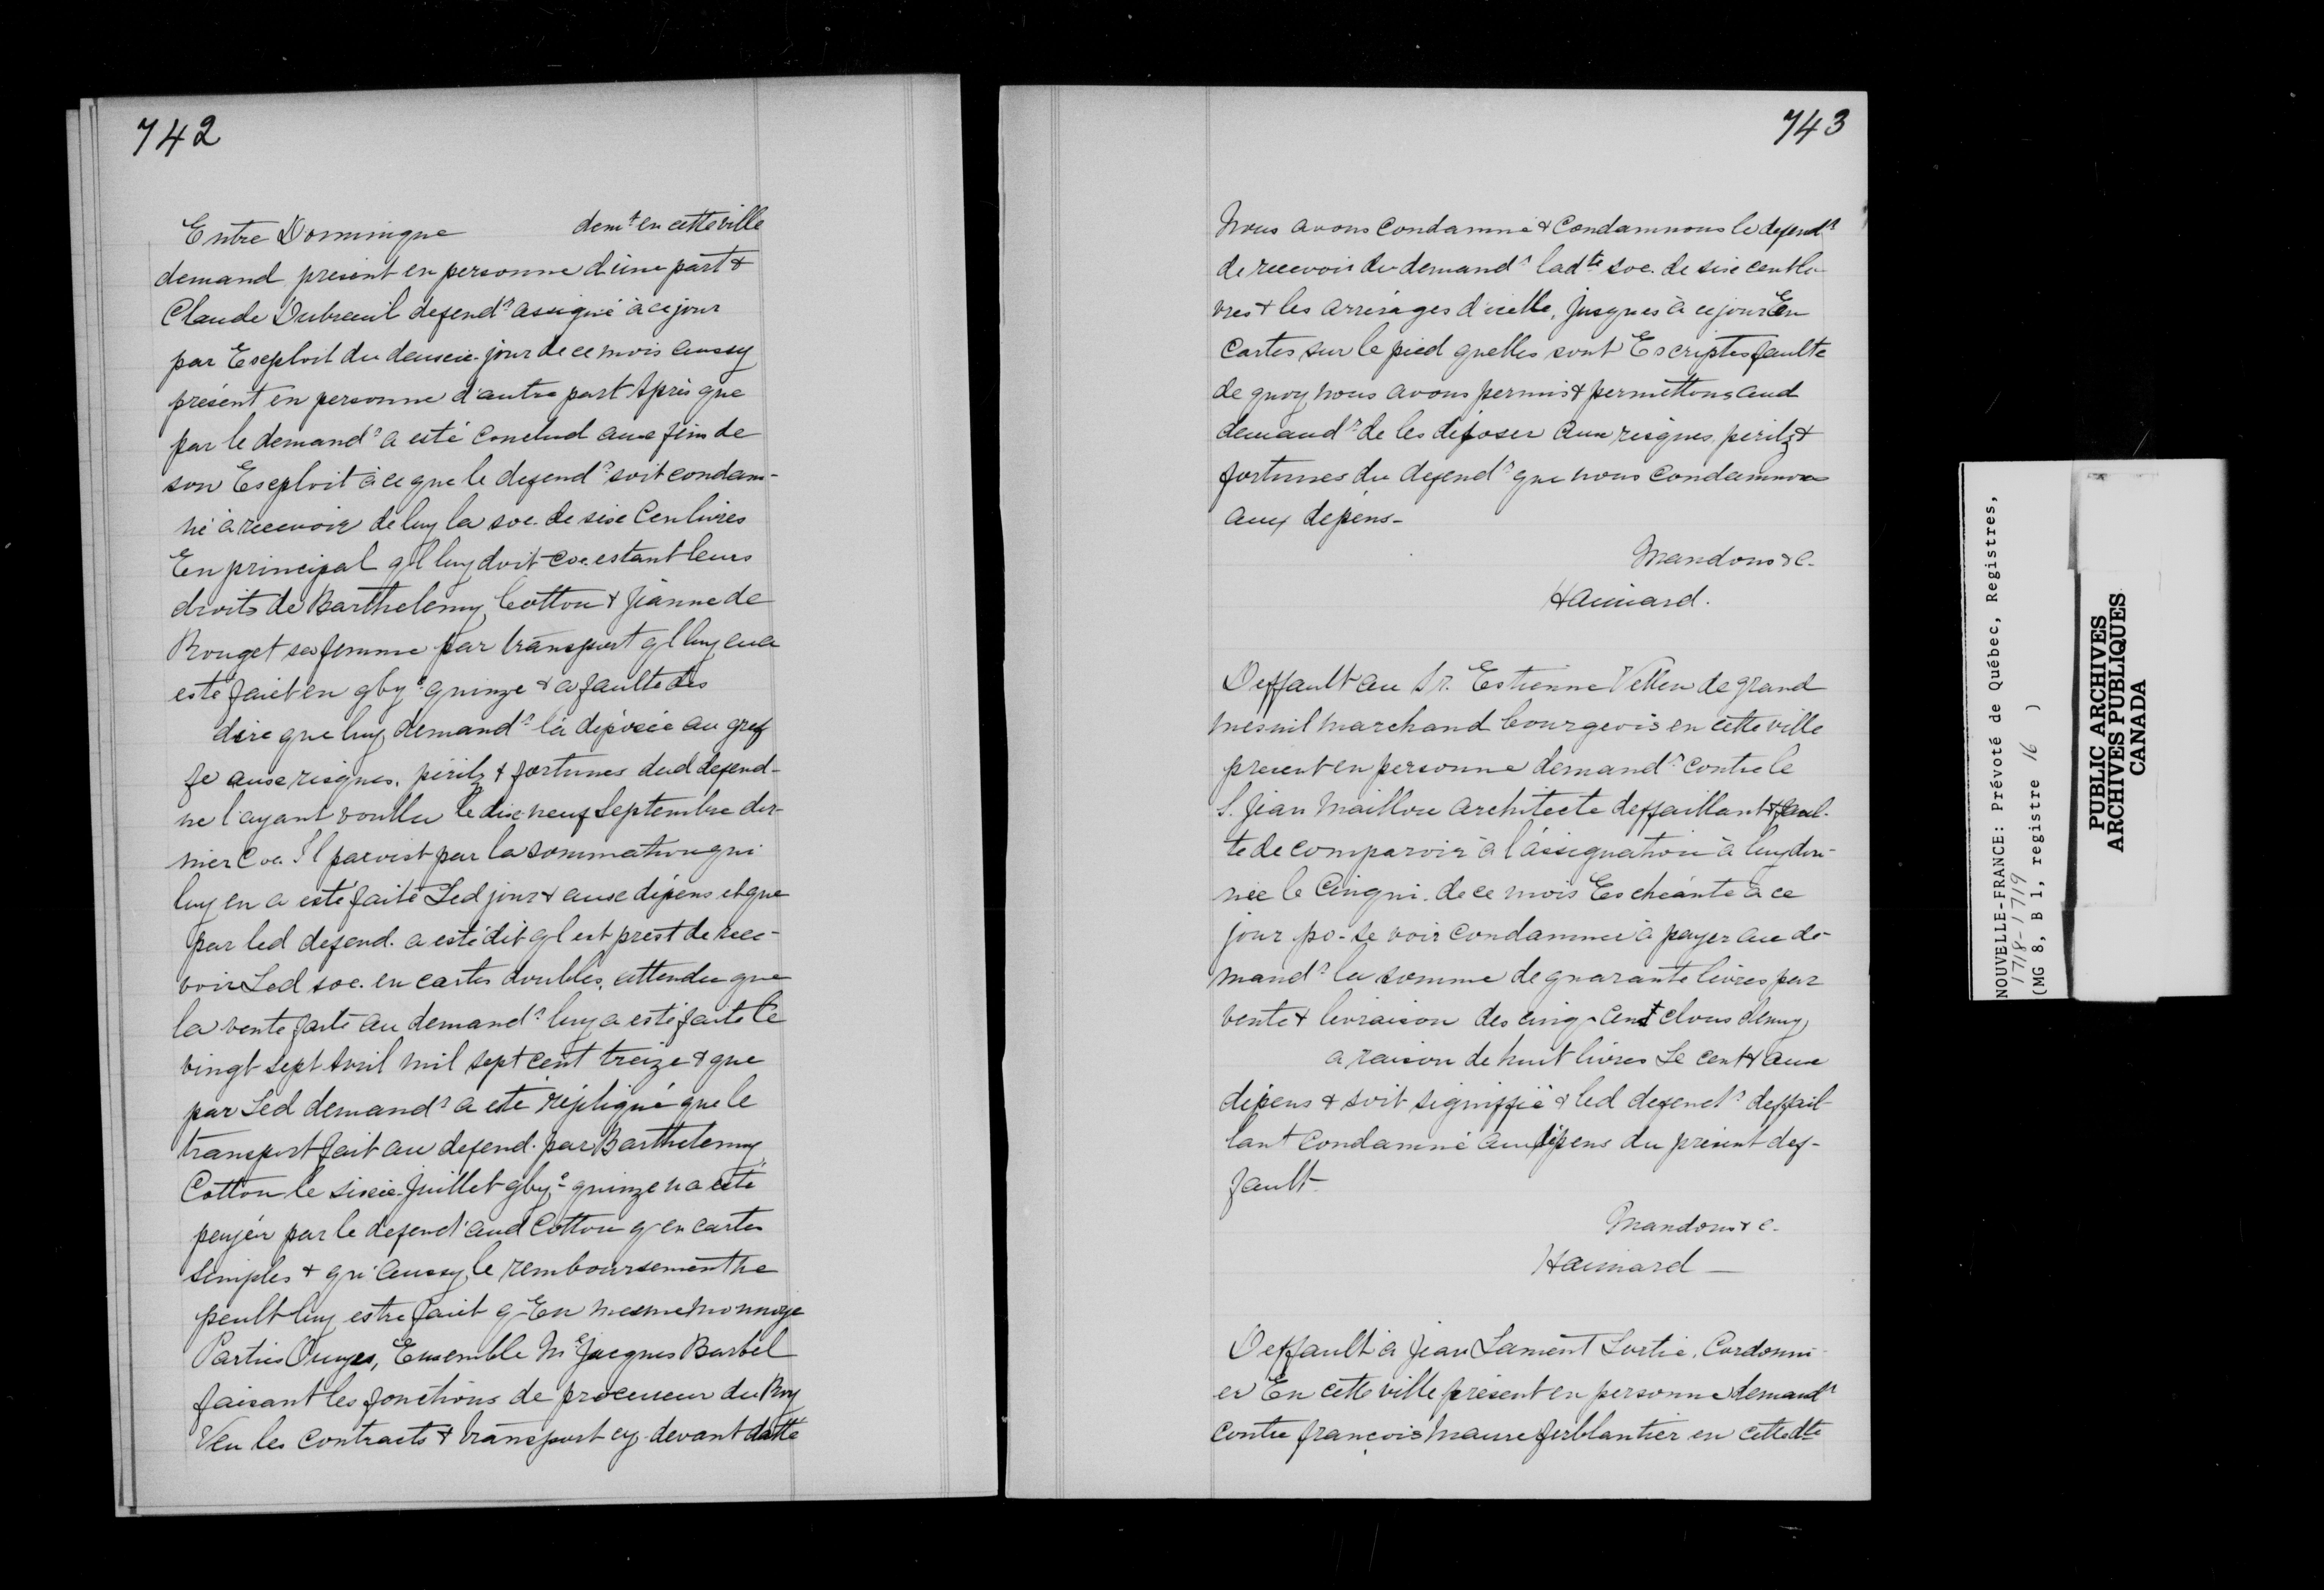 742
Entre Domingue demt en cette ville
demand present en personne d'une part &
Claude Dubreuil defendr assigné à ce jour
par Exploit du deuxie jour de ce mois aussy
présent en personne d'autre part Après que
par le demandr a esté conclud aux fins de
son Exploit à ce que le defendr soit condam-
né à recevoir de luy la soe. de six Cen livres
En principal ql luy doit coe. estant leurs
droits de Barthelemy Cotton & Jeanne de
Rouget sa femme par transport ql luy en a
esté faict en gbyc quinze & a faulte des
dire que luy demandr l'a déposée au gref
fe aux risques, périlz & fortunes dud defend-
ne l'ayant voullu le dix neuf Septembre der-
nier Coe. Il paroist par la sommation qui
luy en a esté faite Led jour & aux dépens et que
par led defend. a esté dit ql est prest de rece-
voir Led soe. en cartes doubles, attendu que
la vente faite au demandr luy a esté faite le
vingt sept Avril mil sept cent treize & que
par Led demandr a esté répliqué que le
transport fait au defend. par Barthelemy
Cotton le sixie Juillet gbyc quinze n'a esté
payée par le defendr aud Cotton q- en cartes
simples & qu'aussy le remboursement ne
peult luy estre faict q- En mesme monnoye
Parties Ouyes, Ensemble Me Jacques Barbel
faisant les fonctions de procureur du Roy
Veu les contracts & transport cy-devant datté
743
Nous avons condamné & Condamnons le defendr
de recevoir du demandr ladte soe. de six cent li-
vres & les arrérages d'icelle, jusques à ce jour En
Cartes sur le pied quelles sont Escriptes faulte
de quoy nous avons permis & permettons aud
demandr de les déposer aux risques, perilz &
fortunes du defendr que nous Condamnons
aux depens-
Mandons & c.
Haimard.
Deffault au Sr. Estienne Vellen de grand
mesnil marchand bourgeois en cette ville
present en personne demandr contre le
S. Jean Maillou Architecte deffaillant & faul-
te de comparoir à l'assignation à luy don-
née le Cinqui. de ce mois Escheante à ce
jour po- se voir condamner à payer au de-
mandr la somme de quarante livres par
vente & livraison des cinq Cent clous
a raison de huit livres Le cent & aux
dépens & soit signiffié & led defendr deffail-
lant condamné aux dépens du présent def-
fault-
Mandons & c.
Haimard —
Deffault à Jean Lament Lortie, Cordonni-
er En cette ville présent en personne demandr
contre françois Maure ferblantier en cette dte
NOUVELLE-FRANCE: Prévoté de Québec, Registres,
1718-1719
(MG 8, B 1, registre 16 )
PUBLIC ARCHIVES
ARCHIVES PUBLIQUES
CANADA